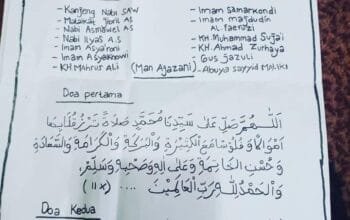 - Kanjeng Nabi SAW
- Malaikat Jibril AS
- Nabi Asmawel AS
- Nabi Ilyas A.S
- Imam Asya'roni
- Imam Asy
- KH Mahrus Ali
(Man Ajazani)
- Imam Samarkondi
- Imam Majdudin
AL-Faerazi
- KH. Muhammad Suja'i
- KH. Ahmad Zurhaya
- Gus Jazuli
- Abuya Sayyid Maliki
Doa pertama
اَللّٰهُمَّ صَلِّ عَلٰى سَيِّدِنَا مُحَمَّدٍ صَلَاةً تَرْزُقُنَا بِهَا
اَمْوَالًا وَفُلُوْسًا مَعَ الْكَثِيْرَةِ وَالْبَرَكَةِ وَالْكَرَامَةِ وَالسَّعَادَةِ
وَحُسْنِ الْخَاتِمَةِ وَعَلٰى اٰلِهٖ وَصَحْبِهٖ وَسَلِّمْ،
وَالْحَمْدُ لِلّٰهِ رَبِّ الْعَالَمِيْنَ .... (11 x)
Doa Kedua